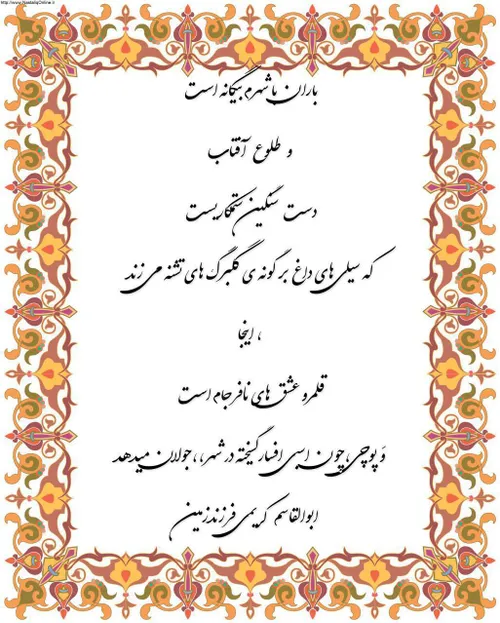 http://www.NastaliqOnline.ir
باران با شهرم بیگانه است
و طلوع آفتاب
دست سنگین ستمکاریست
که سیلی های داغ بر گونه ی گلبرگ های تشنه می زند
، اینجا
قلمرو عشق های نافرجام است
وَ پوچی ،چون اسبی افسار گسیخته در شهر، ،جولان میدهد
ابوالقاسم کریمی فرزندزمین